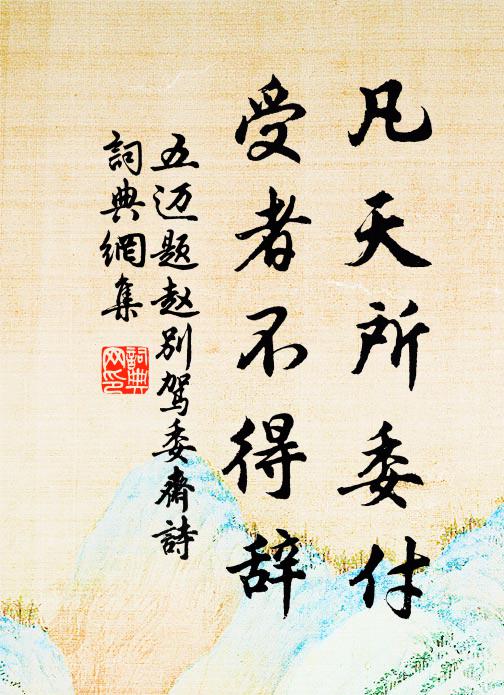 凡天所委付
受者不得辞
五迈题赵别驾委斋诗
詞典網集
詞典
网印